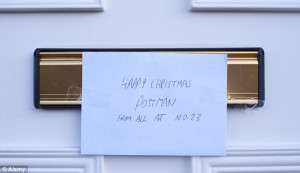 HAPPY CHRISTMAS
POSTMAN
FROM ALL AT NO.23
© Alamy